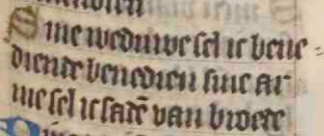 Sine weduwe sel ic bene
diende benedien sine ar
me sel ic saden van broede